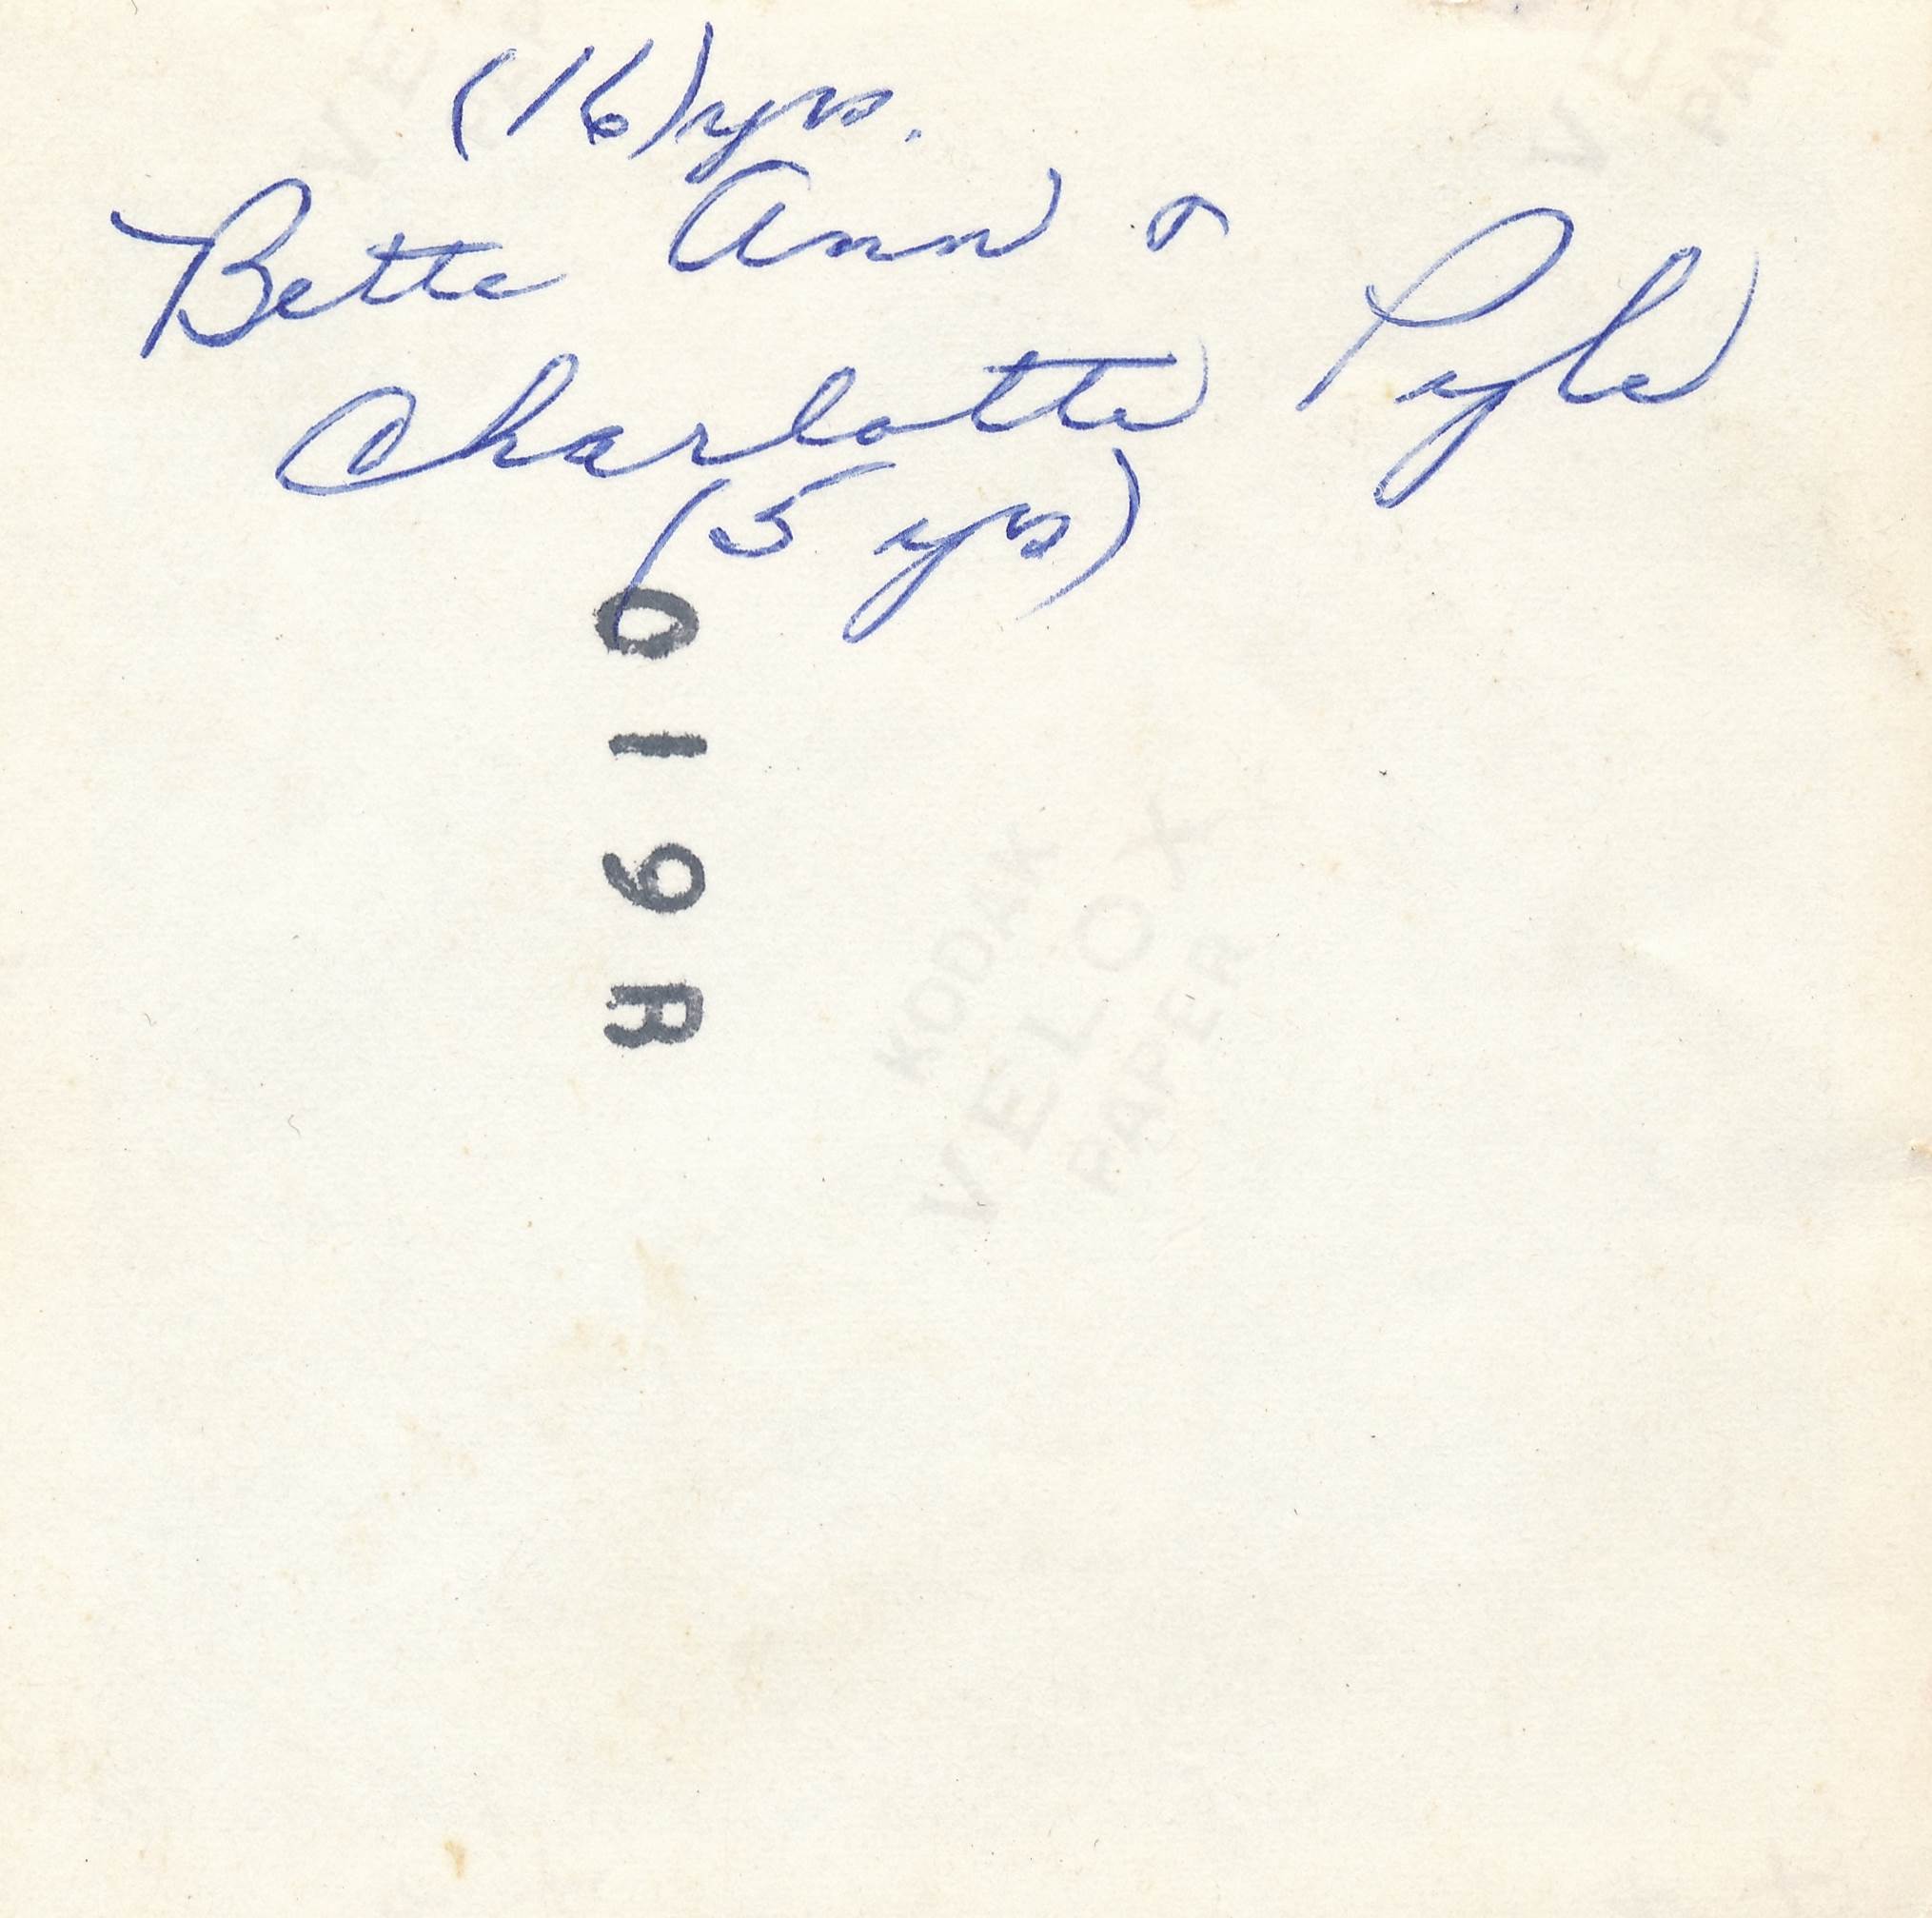 (16) yrs.
Bette Ann &
Charlotte Pyle
(5 yrs)
019R
KODAK
VELOX
PAPER